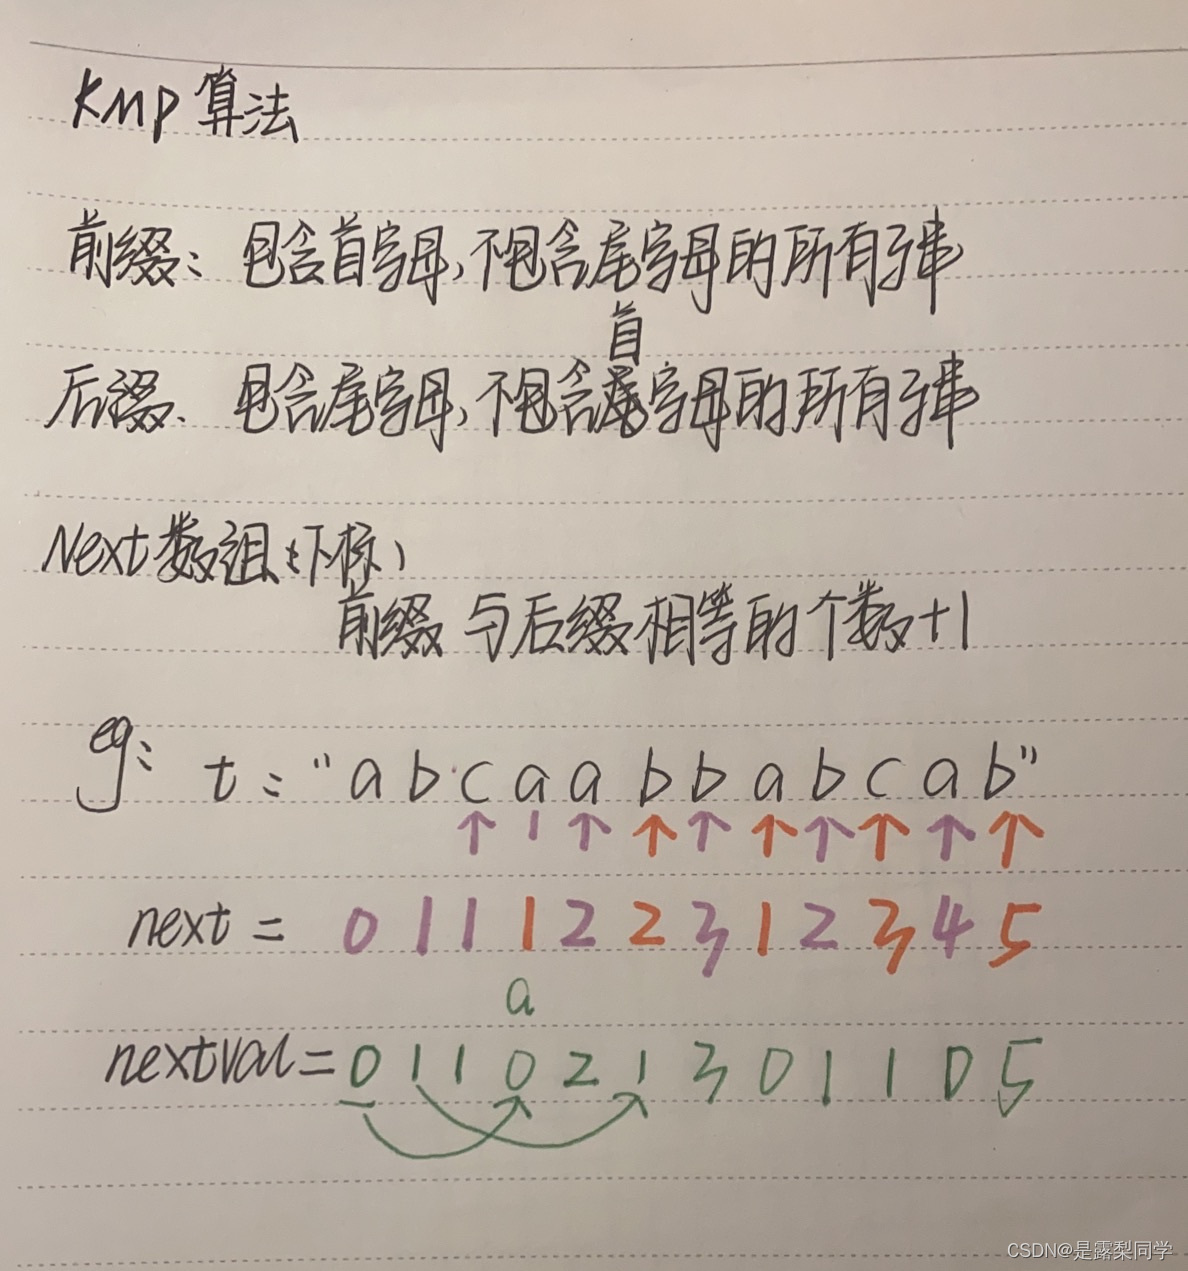 KMP 算法
前缀：包含首字母，不包含尾字母的所有子串
首
后缀：包含尾字母，不包含字母的所有子串
Next数组(下标)
前缀与后缀相等的个数+1
eg: t: "a b c a a b b a b c a b"
next = 0 1 1 1 2 2 3 1 2 3 4 5
a
nextval = 0 1 1 0 2 1 3 0 1 1 0 5
CSDN@是露梨同学